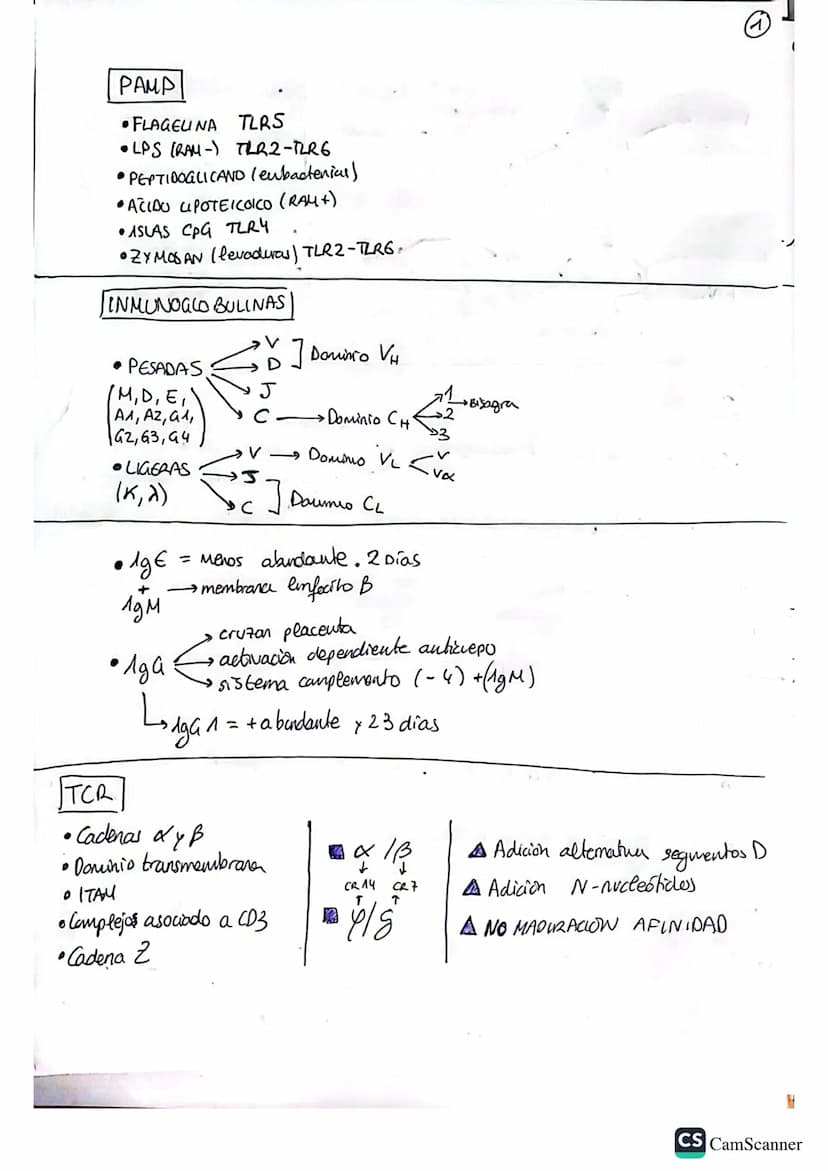 1
PAMP
• FLAGELINA TLR5
• LPS (RAM-) TLR2-TLR6
• PEPTIDOGLICANO (eubacterias)
• ACIDO LIPOTEICOICO (RAM+)
• ISLAS CpG TLR4
• ZYMOSAN (levaduras) TLR2-TLR6.
INMUNOGLOBULINAS
• PESADAS → V → D ] Dominio VH
→ J
(M, D, E, A1, A2, G1, G2, G3, G4)
→ C → Dominio CH → 1 → Bisagra → 2 → 3
• LIGERAS (K, λ)
→ V → Dominio VL < V Vα
→ J → C ] Dominio CL
• IgE = menos abundante. 2 Días
+ → membrana linfocito B
IgM
→ cruzan placenta
• IgG → activación dependiente anticuepo
→ sistema complemento (-4) + (IgM)
↳ IgG 1 = + abundante y 23 días
TCR
• Cadenas α y β
• Dominio transmembrana
• ITAM
• Complejos asociado a CD3
• Cadena Z
α / β
↓ ↓
CR14 CR7
↑ ↑
φ/δ
Adición alternativa segmentos D
Adición N-nucleótidos
NO MADURACIÓN AFINIDAD
CS CamScanner